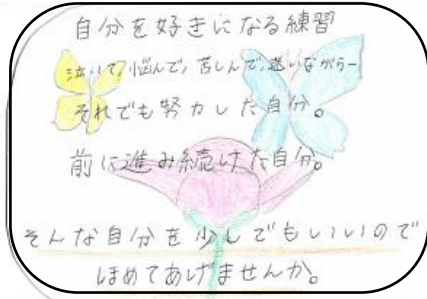 自分を好きになる練習
泣いて、悩んで、苦しんで、迷いながらー
それでも努力した自分。
前に進み続けた自分。
そんな自分を少しでもいいので
ほめてあげませんか。